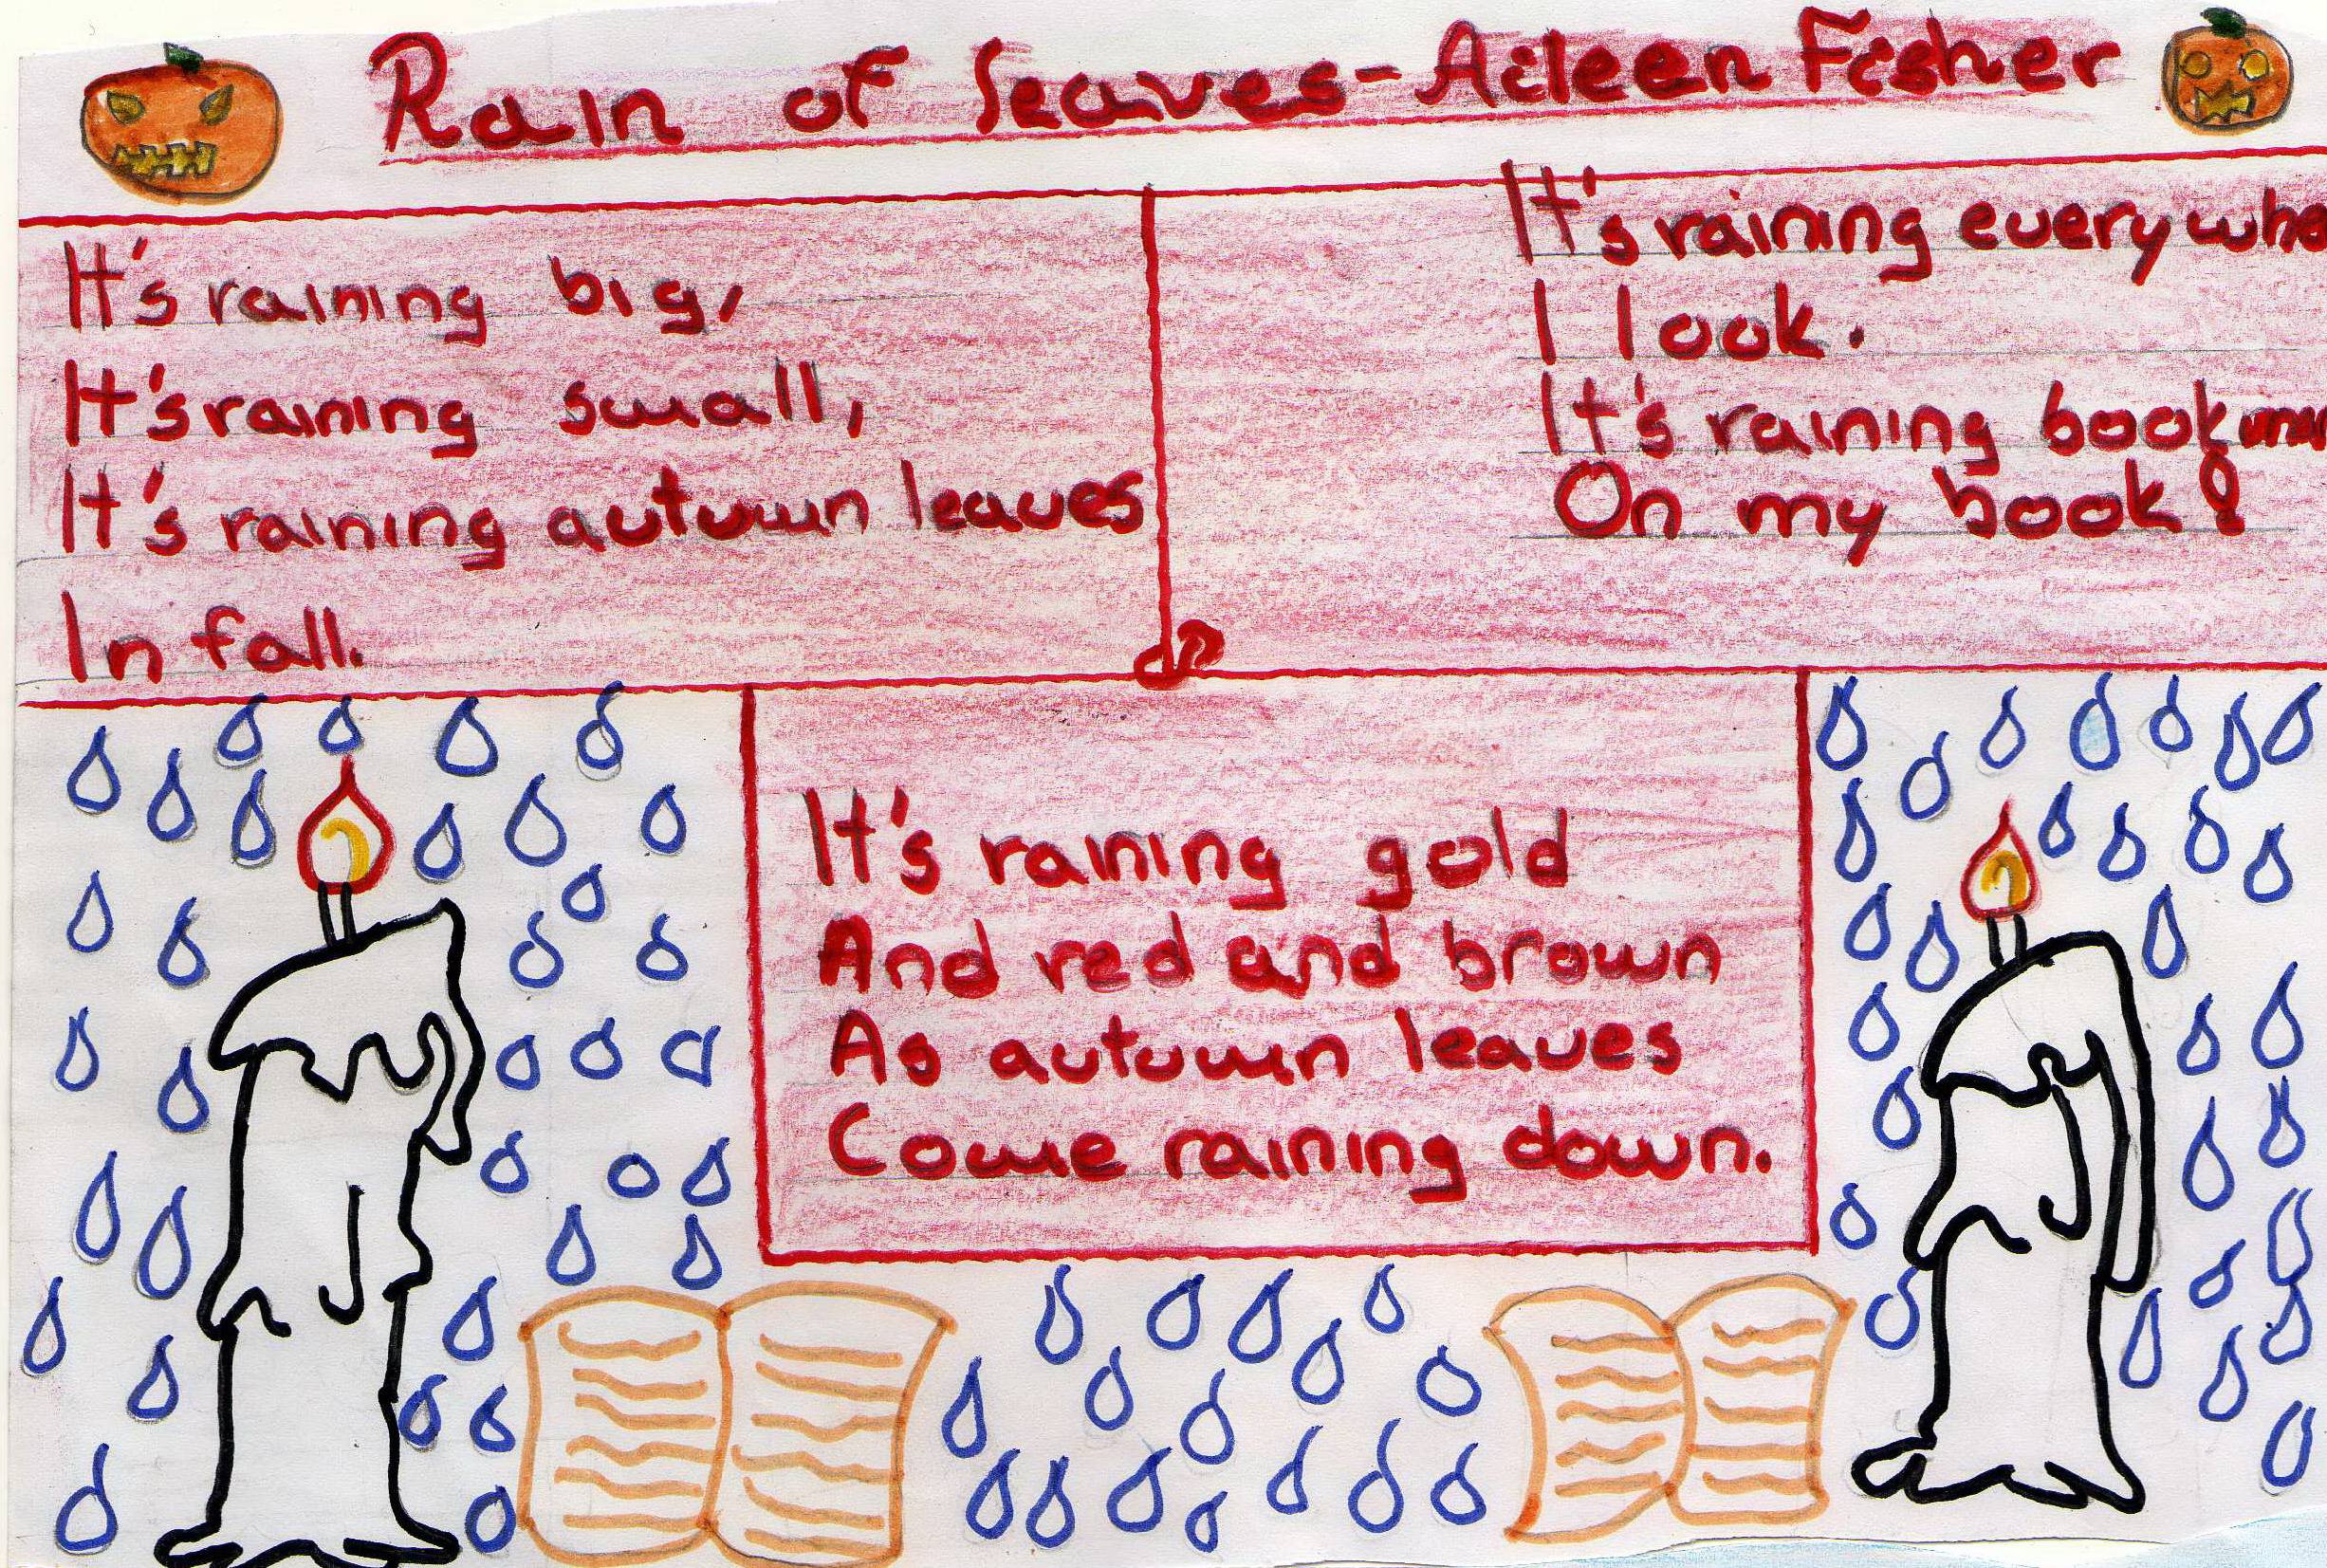 Rain of leaves - Aileen Fisher
It's raining big,
It's raining small,
It's raining autumn leaves
In fall.
It's raining everywhe
I look.
It's raining bookmar
On my book!
It's raining gold
And red and brown
As autumn leaves
Come raining down.